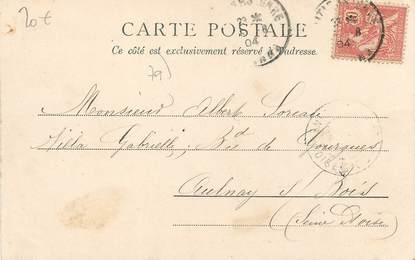 20€
CARTE POSTALE
Ce côté est exclusivement réservé à l'adresse.
79)
23 8
04
23 8
04
Monsieur Albert Soreau
Villa Gabrielle, Bd de Gourgues
Aulnay s/ Bois
(Seine & Oise)